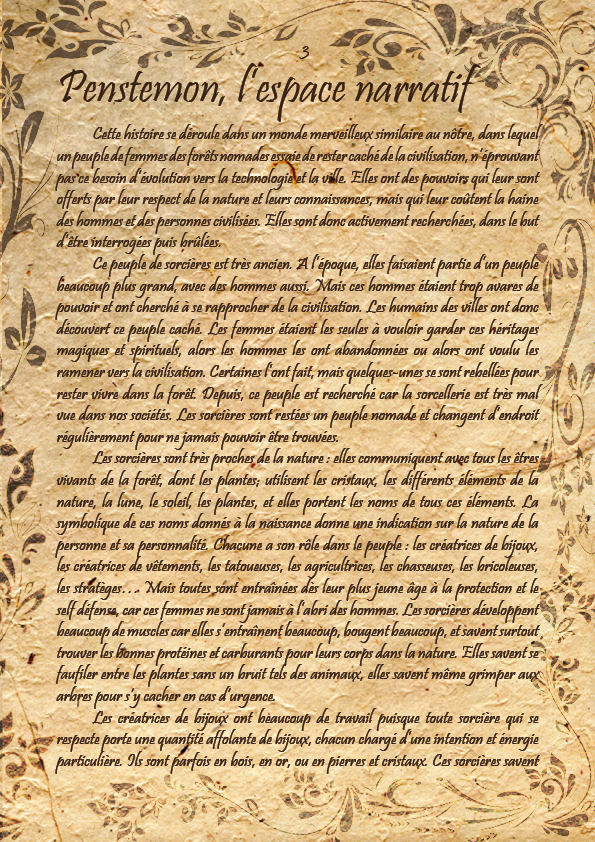 3
Penstemon, l'espace narratif
Cette histoire se déroule dans un monde merveilleux similaire au nôtre, dans lequel
un peuple de femmes des forêts nomades essaie de rester caché de la civilisation, n'éprouvant
pas ce besoin d'évolution vers la technologie et la ville. Elles ont des pouvoirs qui leur sont
offerts par leur respect de la nature et leurs connaissances, mais qui leur coûtent la haine
des hommes et des personnes civilisées. Elles sont donc activement recherchées, dans le but
d'être interrogées puis brûlées.
Ce peuple de sorcières est très ancien. A l'époque, elles faisaient partie d'un peuple
beaucoup plus grand, avec des hommes aussi. Mais ces hommes étaient trop avares de
pouvoir et ont cherché à se rapprocher de la civilisation. Les humains des villes ont donc
découvert ce peuple caché. Les femmes étaient les seules à vouloir garder ces héritages
magiques et spirituels, alors les hommes les ont abandonnées ou alors ont voulu les
ramener vers la civilisation. Certaines l'ont fait, mais quelques-unes se sont rebellées pour
rester vivre dans la forêt. Depuis, ce peuple est recherché car la sorcellerie est très mal
vue dans nos sociétés. Les sorcières sont restées un peuple nomade et changent d'endroit
régulièrement pour ne jamais pouvoir être trouvées.
Les sorcières sont très proches de la nature : elles communiquent avec tous les êtres
vivants de la forêt, dont les plantes; utilisent les cristaux, les différents éléments de la
nature, la lune, le soleil, les plantes, et elles portent les noms de tous ces éléments. La
symbolique de ces noms donnés à la naissance donne une indication sur la nature de la
personne et sa personnalité. Chacune a son rôle dans le peuple : les créatrices de bijoux,
les créatrices de vêtements, les tatoueuses, les agricultrices, les chasseuses, les bricoleuses,
les stratèges... Mais toutes sont entraînées dès leur plus jeune âge à la protection et le
self défense, car ces femmes ne sont jamais à l'abri des hommes. Les sorcières développent
beaucoup de muscles car elles s'entraînent beaucoup, bougent beaucoup, et savent surtout
trouver les bonnes protéines et carburants pour leurs corps dans la nature. Elles savent se
faufiler entre les plantes sans un bruit tels des animaux, elles savent même grimper aux
arbres pour s'y cacher en cas d'urgence.
Les créatrices de bijoux ont beaucoup de travail puisque toute sorcière qui se
respecte porte une quantité affolante de bijoux, chacun chargé d'une intention et énergie
particulière. Ils sont parfois en bois, en or, ou en pierres et cristaux. Ces sorcières savent